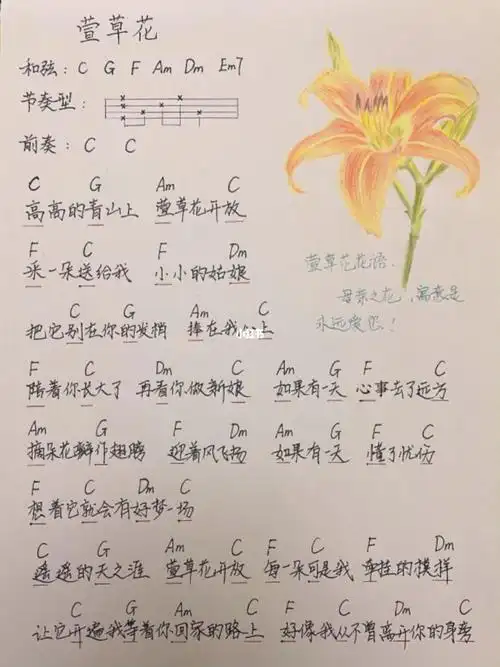 萱草花
和弦: C G F Am Dm Em7
节奏型:
前奏: C C
C G Am C
高高的青山上 萱草花开放
F C F Dm
采一朵送给我 小小的姑娘
萱草花花语.
母亲之花,寓意是
永远爱您!
C G Am C
把它别在你的发梢 捧在我心上
F C F Dm C Am G F C
陪着你长大了 再看你做新娘 如果有一天 心事去了远方
Am G F Dm Am G F C
摘朵花瓣作翅膀 迎着风飞扬 如果有一天 懂了忧伤
F C Dm C
想着它就会有好梦一场
C G Am C F C F Dm
遥遥的天之涯 萱草花开放 每一朵可是我 牵挂的模样
C G Am C F C Dm C
让它开遍我等着你回家的路上 好像我从不曾离开你的身旁